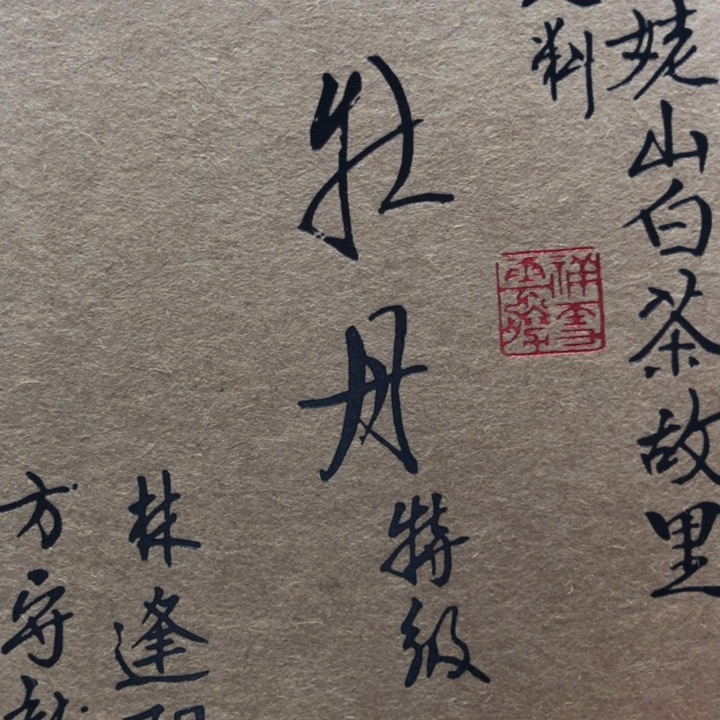 姥山白茶故里
料
牡丹
特级
林逢
方守龙